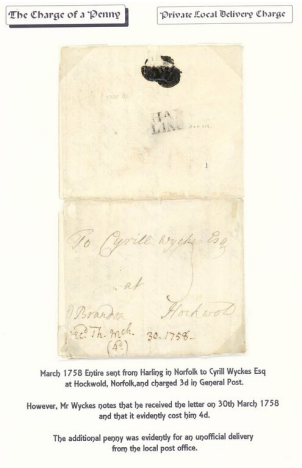 The Charge of a Penny
Private Local Delivery Charge
HAR
LING
To Cyrill Wyche Esq
at
Hockwol
Brander
Th. Mch. 30. 1758.
(4d)
March 1758 Entire sent from Harling in Norfolk to Cyrill Wyckes Esq
at Hockwold, Norfolk,and charged 3d in General Post.
However, Mr Wyckes notes that he received the letter on 30th March 1758
and that it evidently cost him 4d.
The additional penny was evidently for an unofficial delivery
from the local post office.